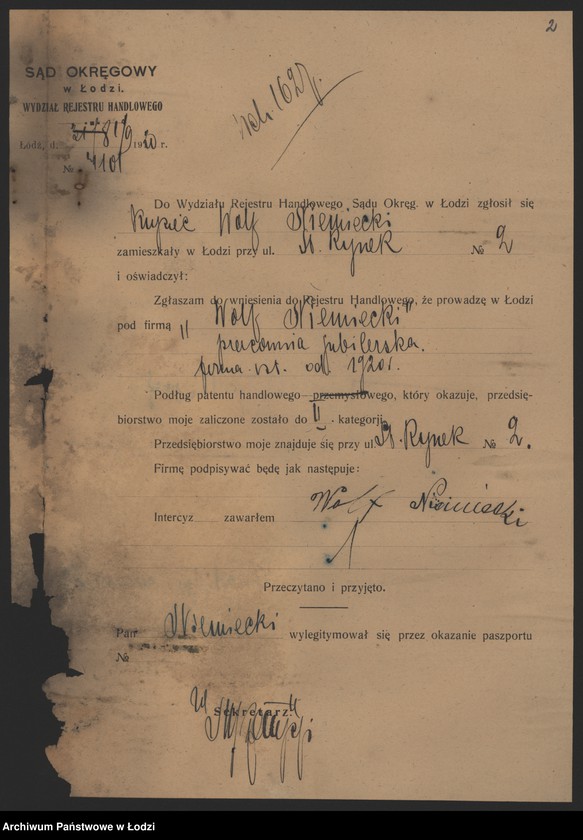 2
SĄD OKRĘGOWY
w Łodzi.
WYDZIAŁ REJESTRU HANDLOWEGO
Łódź, d. 1920 r.
№ 4101
1627
Do Wydziału Rejestru Handlowego Sądu Okręg. w Łodzi zgłosił się
Kupiec Wolf Niemiecki
zamieszkały w Łodzi przy ul. St. Rynek № 2
i oświadczył:
Zgłaszam do wniesienia do Rejestru Handlowego, że prowadzę w Łodzi
pod firmą „Wolf Niemiecki"
pracownia jubilerska.
firma ist. od 1920 r.
Podług patentu handlowego przemysłowego, który okazuje, przedsię-
biorstwo moje zaliczone zostało do II kategorji
Przedsiębiorstwo moje znajduje się przy ul. St. Rynek № 2.
Firmę podpisywać będę jak następuje:
Wolf Niemiecki
Intercyz zawarłem
Przeczytano i przyjęto.
Pan Niemiecki wylegitymował się przez okazanie paszportu
№
Sekretarz:
Archiwum Państwowe w Łodzi